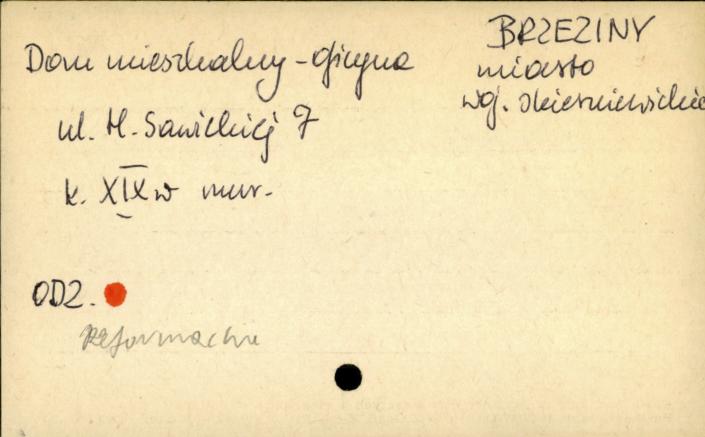 BRZEZINY
miasto
woj. skierniewickie
Dom mieszkalny - oficyna
ul. H. Sawickiej 7
k. XIX w mur.
ODZ.